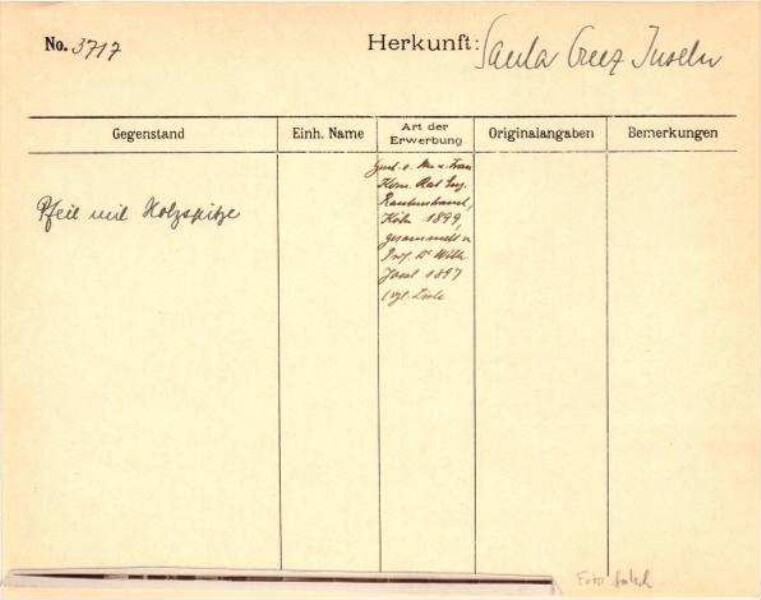 No. 3717
Herkunft: Santa Cruz Inseln
Gegenstand
Einh. Name
Art der
Erwerbung
Originalangaben
Bemerkungen
Pfeil mit Holzspitze
Gesch. v. u. Frau
Kom. Rat Eug.
Rautenstrauch,
Köln 1899,
gesammelt v.
Prof. Dr Wilh.
Joest 1897
(vgl. Liste
Foto falsch